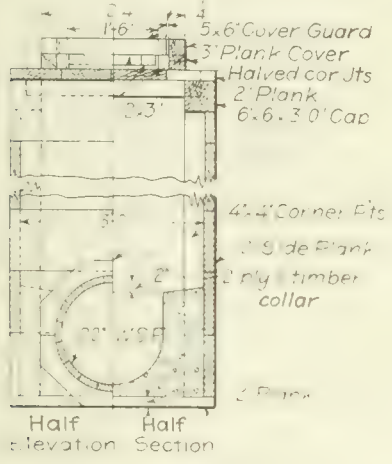 1'6"
5x6"Cover Guard
3"Plank Cover
Halved cor Jts
2"Plank
2'3"
6"x6"x3'0"Cap
4"x4"Corner
Side Plank
2 ply timber
collar
2"
Plank
Half Half
Elevation Section